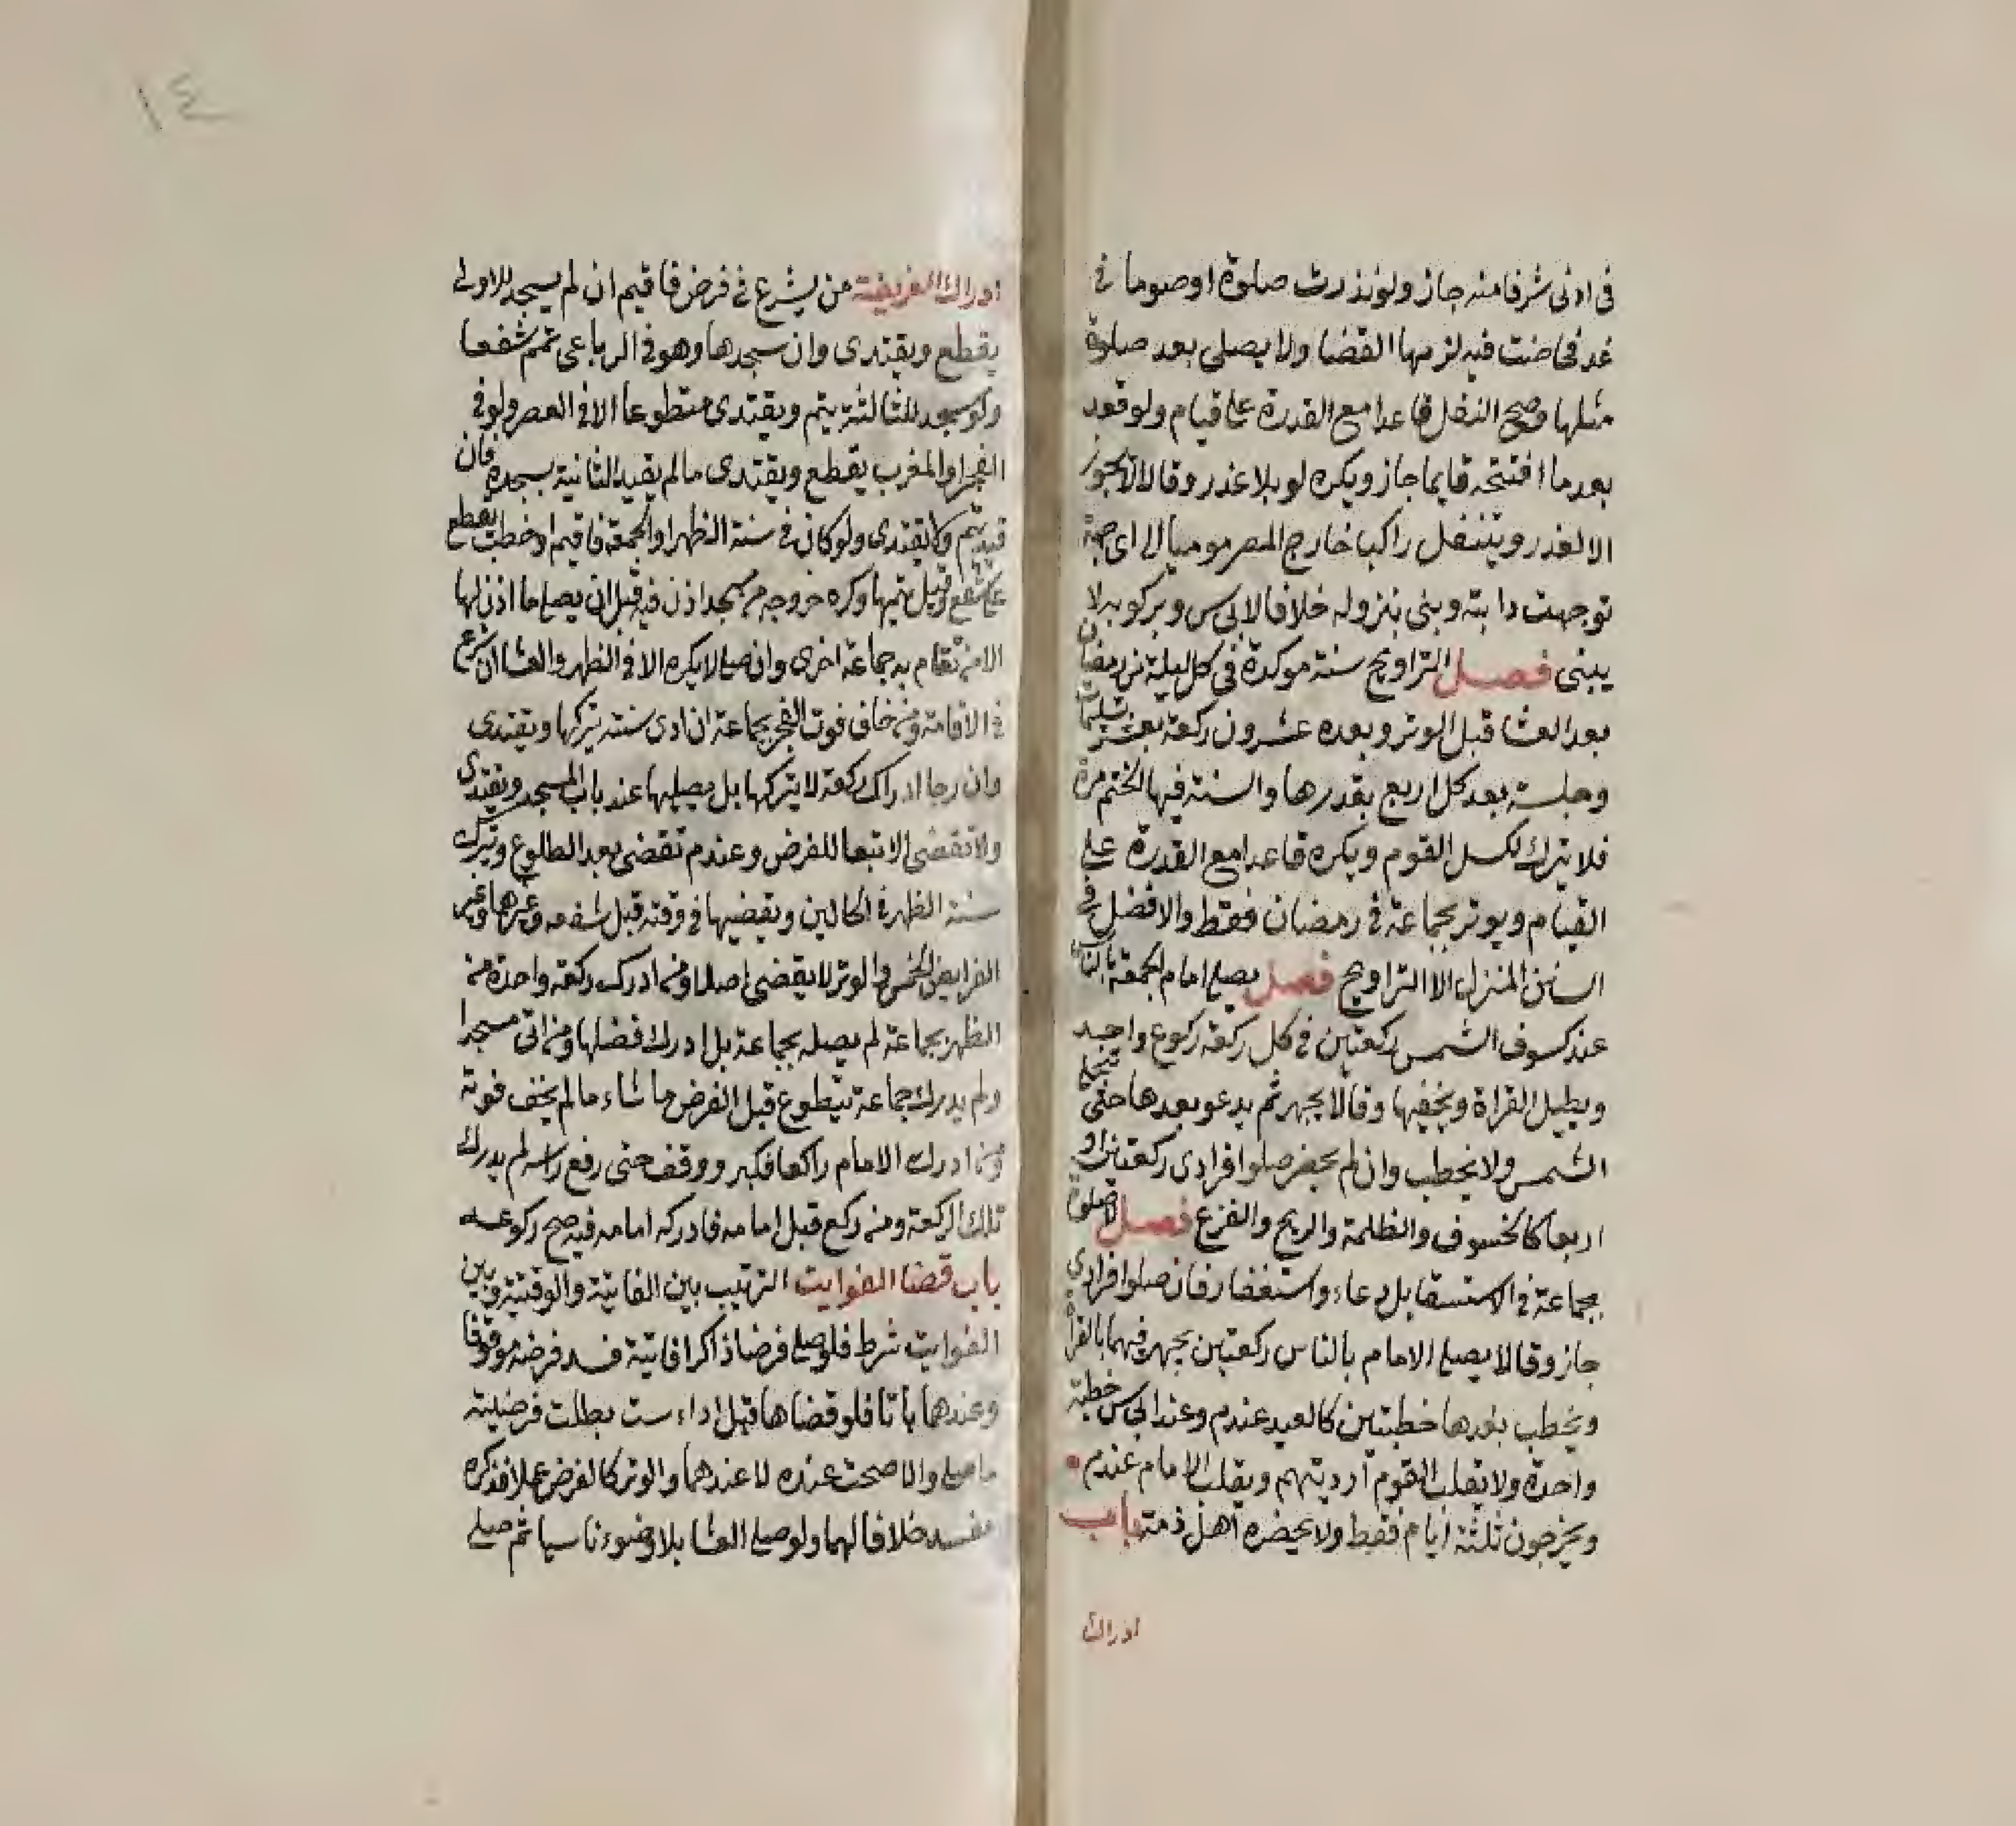 في ادنى شرفا منه جاز ولو نذرت صلوة او صوما في
غد فحاضت فيه لزمها القضا ولا يصلى بعد صلوة
مثلها وصح النفل قاعدا مع القدرة على قيام ولو قعد
بعد ما افتتحه قايما جاز ويكره لو بلا عذر وقالا لا يجوز
الا لعذر ويتنفل راكبا خارج المصر موميا الى اى جهة
توجهت دابته وبنى بنزوله خلافا لابى س وبركوبه لا
يبنى فصل التراويح سنة موكدة في كل ليلة من رمضان
بعد العشا قبل الوتر وبعده عشرون ركعة بعشر تسليمات
وجلسة بعد كل اربع بقدرها والسنة فيها الختم مرة
فلا يترك لكسل القوم ويكره قاعدا مع القدرة على
القيام ويوتر بجماعة في رمضان فقط والافضل في
السنن المنزل الا التراويح فصل يصلى امام الجمعة بالناس
عند كسوف الشمس ركعتين في كل ركعة ركوع واحد
ويطيل القراة ويخفيها وقالا يجهر ثم يدعو بعدها حتى تنجلى
الشمس ولا يخطب وان لم يحضر صلوا فرادى ركعتين او
اربعا كالخسوف والظلمة والريح والفزع فصل لا صلوة
بجماعة في الاستسقا بل دعاء واستغفار فان صلوا فرادى
جاز وقالا يصلى الامام بالناس ركعتين يجهر فيهما بالقراة
ويخطب بعدها خطبتين كالعيد عندم وعند ابى س خطبة
واحدة ولا يقلب القوم ارديتهم ويقلب الامام عندم
ويخرجون ثلثة ايام فقط ولا يحضره اهل ذمة باب
ادراك
١٤
ادراك الفريضة من يشرع في فرض فاقيم ان لم يسجد للاولى
يقطع ويقتدى وان سجدها وهو في الرباعى تمم شفعا
ولو سجد للثالثة يتم ويقتدى متطوعا الا في العصر ولو في
الفجر او المغرب يقطع ويقتدى ما لم يقيد الثانية بسجدة فان
قيد يتم ولا يقتدى ولو كان في سنة الظهر او الجمعة فاقيم او خطب يقطع
على شفع وقيل يتمها وكره خروجه من مسجد اذن فيه قبل ان يصلى ما اذن لها
الا من تقام به جماعة اخرى وان صلى لا يكره الا في الظهر والعشا ان شرع
في الاقامة ومن خاف فوت الفجر بجماعة ان ادى سنته يتركها ويقتدى
وان رجا ادراك ركعة لا يتركها بل يصليها عند باب المسجد ويقتدى
ولا تقضى الا تبعا للفرض وعندم تقضى بعد الطلوع ويترك
سنة الظهر في الحالين ويقضيها في وقته قبل شفعه وغيرها وغير
الفرايض الخمس والوتر لا يقضى اصلا ومن ادرك ركعة واحدة من
الظهر بجماعة لم يصله بجماعة بل ادرك فضلها ومن اتى مسجدا
ولم يدرك جماعة يتطوع قبل الفرض ما شاء ما لم يخف فوته
ومن ادرك الامام راكعا فكبر ووقف حتى رفع راسه لم يدرك
تلك الركعة ومن ركع قبل امامه فادركه امامه فيه صح ركوعه
باب قضا الفوايت الترتيب بين الفايتة والوقتية وبين
الفوايت شرط فلو صلى فرضا ذاكرا فايتة فسد فرضه موقوفا
وعندهما باتا فلو قضاها قبل اداء ست بطلت فرضيته
ما صلى والا صحت عنده لا عندهما والوتر كالفرض عملا فذكره
مفسد خلافا لهما ولو صلى العشا بلا وضوء ناسيا ثم صلى